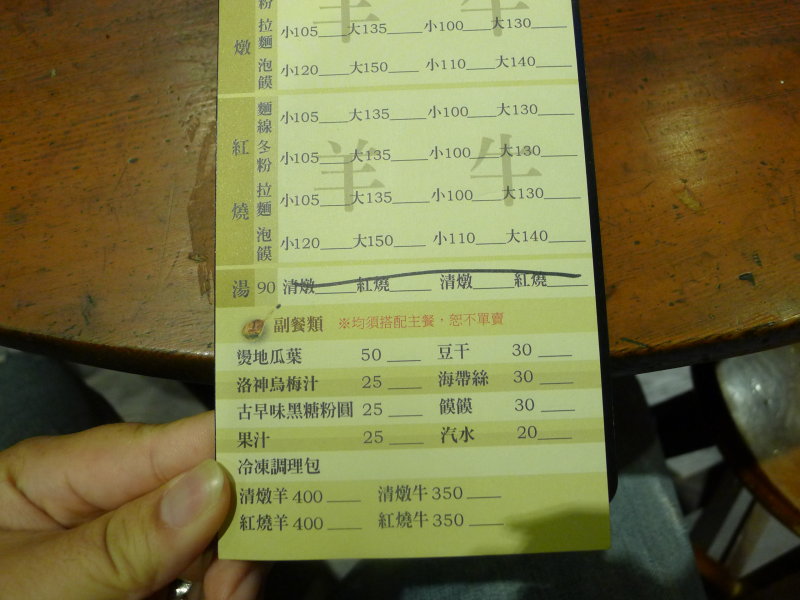 粉
羊 牛
燉 拉麵 小105____大135____小100____大130____
泡饃 小120____大150____小110____大140____
麵線 小105____大135____小100____大130____
紅 冬粉 小105____大135____小100____大130____
羊 牛
燒 拉麵 小105____大135____小100____大130____
泡饃 小120____大150____小110____大140____
湯 90 清燉____紅燒____清燉____紅燒____
副餐類 ※均須搭配主餐，恕不單賣
燙地瓜葉 50 ____ 豆干 30 ____
洛神烏梅汁 25 ____ 海帶絲 30 ____
古早味黑糖粉圓 25 ____ 饃饃 30 ____
果汁 25 ____ 汽水 20____
冷凍調理包
清燉羊 400 ____ 清燉牛 350 ____
紅燒羊 400 ____ 紅燒牛 350 ____